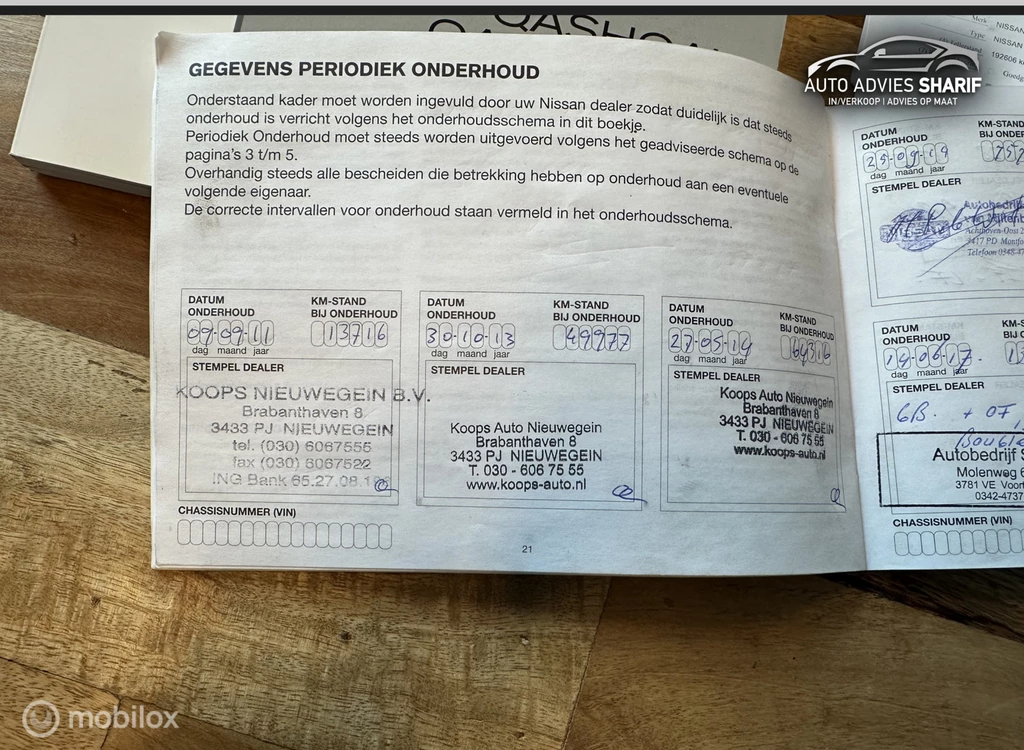 QASHQAI
Merk NISSAN
Type NISSAN
192606 k
AUTO ADVIES SHARIF
IN/VERKOOP | ADVIES OP MAAT
GEGEVENS PERIODIEK ONDERHOUD
Onderstaand kader moet worden ingevuld door uw Nissan dealer zodat duidelijk is dat steeds
onderhoud is verricht volgens het onderhoudsschema in dit boekje.
Periodiek Onderhoud moet steeds worden uitgevoerd volgens het geadviseerde schema op de
pagina's 3 t/m 5.
Overhandig steeds alle bescheiden die betrekking hebben op onderhoud aan een eventuele
volgende eigenaar.
De correcte intervallen voor onderhoud staan vermeld in het onderhoudsschema.
DATUM ONDERHOUD
KM-STAND BIJ ONDERHOUD
09-09-11
13716
dag maand jaar
STEMPEL DEALER
KOOPS NIEUWEGEIN B.V.
Brabanthaven 8
3433 PJ NIEUWEGEIN
tel. (030) 6067555
fax (030) 6067522
ING Bank 65.27.08.1
CHASSISNUMMER (VIN)
DATUM ONDERHOUD
KM-STAND BIJ ONDERHOUD
30-10-13
49977
dag maand jaar
STEMPEL DEALER
Koops Auto Nieuwegein
Brabanthaven 8
3433 PJ NIEUWEGEIN
T. 030 - 606 75 55
www.koops-auto.nl
DATUM ONDERHOUD
KM-STAND BIJ ONDERHOUD
27-05-14
64316
dag maand jaar
STEMPEL DEALER
Koops Auto Nieuwegein
Brabanthaven 8
3433 PJ NIEUWEGEIN
T. 030 - 606 75 55
www.koops-auto.nl
21
DATUM ONDERHOUD
KM-STAND BIJ ONDERH
25-09-19
dag maand jaar
STEMPEL DEALER
Autobedrij
Achthoven-Oost 2
3417 PD Montfo
Telefoon 0348-47
DATUM ONDERHOUD
KM-S
BIJ O
14-06-17.
dag maand jaar
STEMPEL DEALER
GB. + OF
Bougie
Autobedrijf S
Molenweg 6
3781 VE Voort
0342-4737
CHASSISNUMMER (VIN)
mobilox